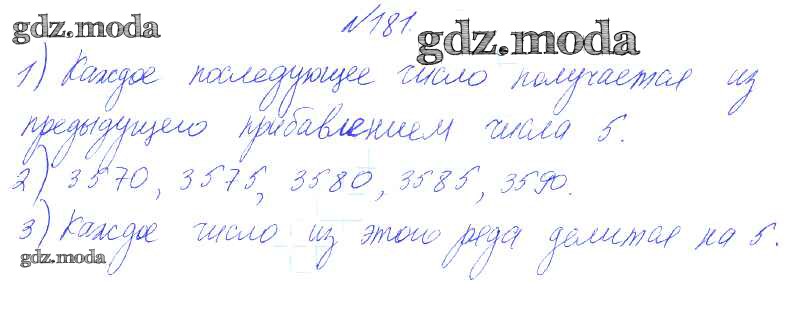 №181.
gdz.moda
gdz.moda
1) Каждое последующее число получается из
предыдущего прибавлением числа 5.
2) 3570, 3575, 3580, 3585, 3590.
3) Каждое число из этого ряда делится на 5.
gdz.moda